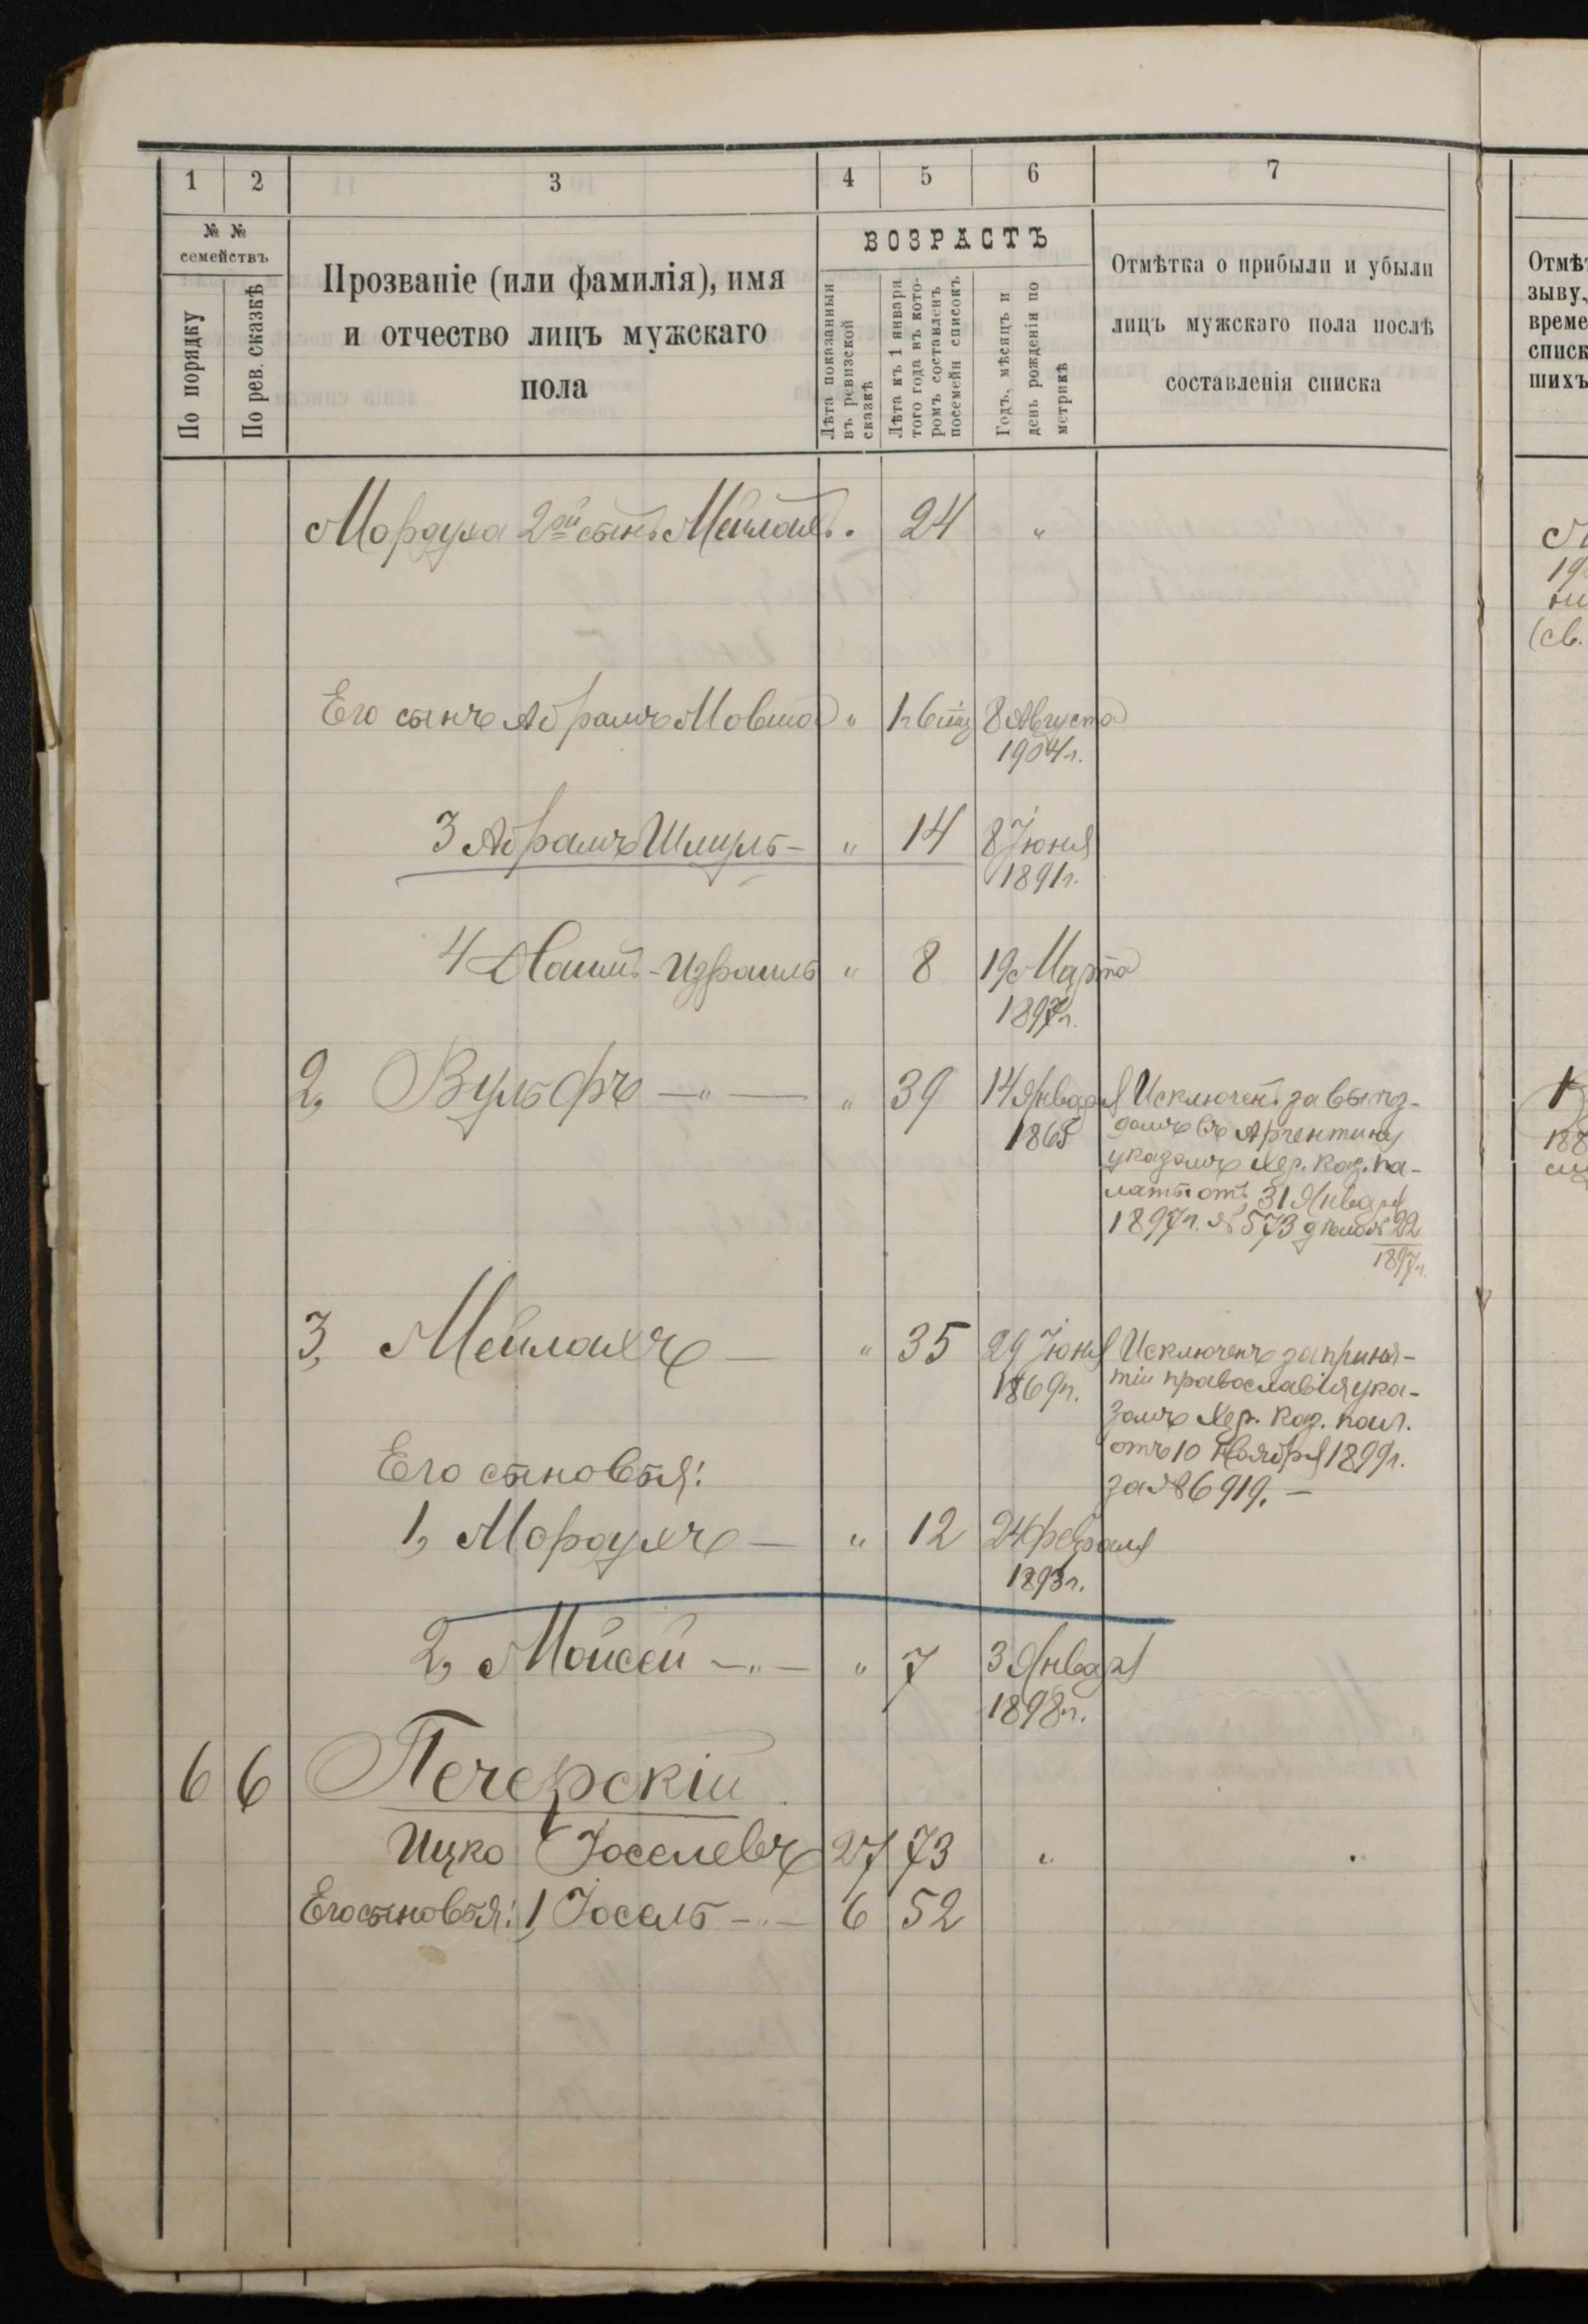 1 2 3 4 5 6 7
№ №
семействъ
По порядку
По рев. сказкѣ
Прозваніе (или фамилія), имя
и отчество лицъ мужскаго
пола
ВОЗРАСТЪ
Лѣта показанныя
въ ревизской
сказкѣ
Лѣта къ 1 января
того года въ кото-
ромъ составленъ
посемейн списокъ
Годъ, мѣсяцъ и
день рожденія по
метрикѣ
Отмѣтка о прибыли и убыли
лицъ мужскаго пола послѣ
составленія списка
Мордуха 2ой сынъ Мейлахъ. 24 "
Его сынъ Абрамъ Мовша " 8 Августа
1904 г.
3 Абрамъ Шмуль - " 14 8 Іюня
1891 г.
4 -Израиль " 8 19 Марта
1897 г.
2, Вульфъ - " - " 39 14 Января
1865
Исключенъ за выѣз-
домъ въ Аргентину
указомъ Хер. Каз. Па-
латы отъ 31 Января
1897 г. № 573 дѣло № 22
1897 г.
3, Мейлахъ - " 35 29 Іюня
1869 г.
Исключенъ за приня-
тіи православія ука-
зомъ Хер. Каз. пал.
отъ 10 Ноября 1899 г.
за № 6919. -
Его сыновья:
1, Мордухъ - " 12 24 февраля
1893 г.
2, Мойсей - " - " 7 3 Января
1898 г.
6 6 Печерскій
Ицко Іоселевъ 27 73 "
Его сыновья: 1, Іосель - " - 6 52
Отмѣт
зыву,
време
списк
шихъ
19
(св.
188